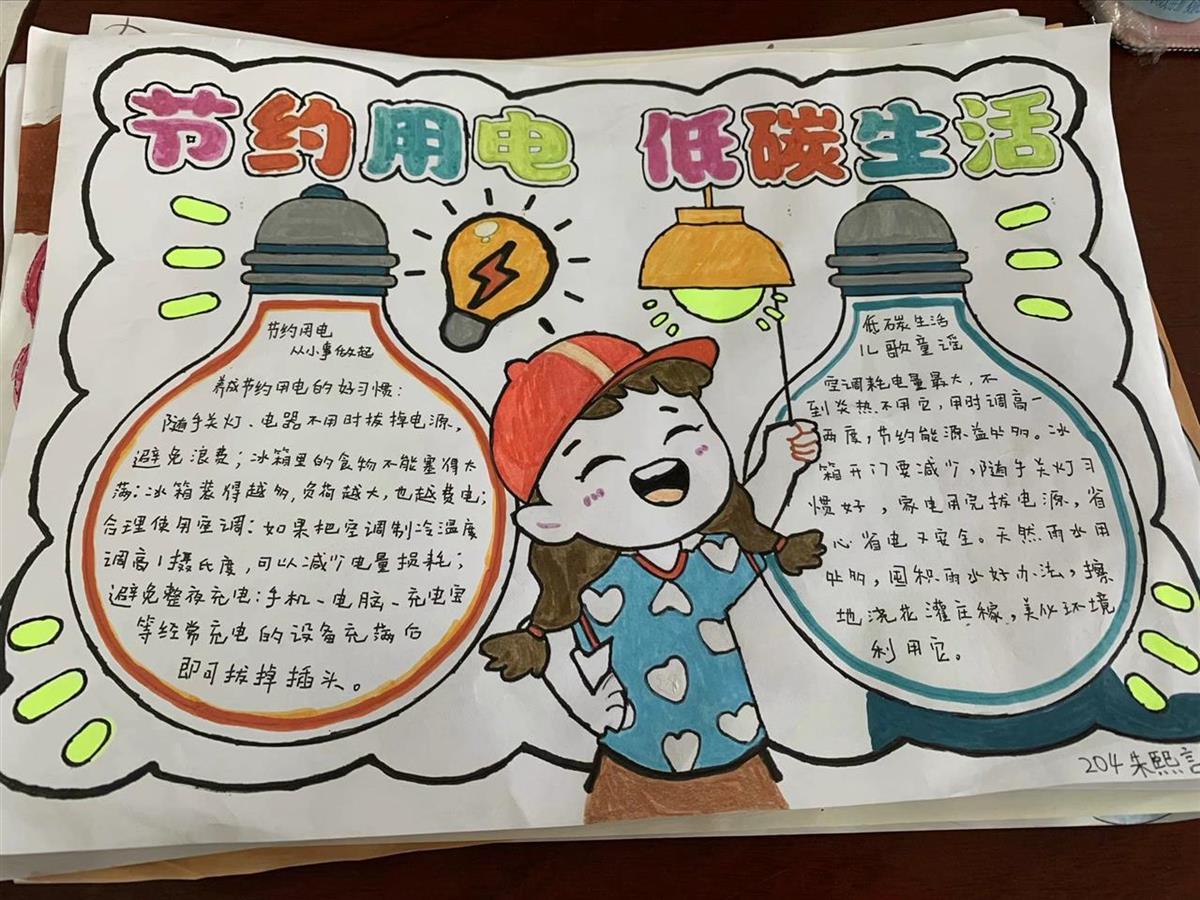 节约用电 低碳生活
节约用电
从小事做起
养成节约用电的好习惯:
随手关灯、电器不用时拔掉电源,
避免浪费;冰箱里的食物不能塞得太
满:冰箱装得越多,负荷越大,也越费电;
合理使用空调:如果把空调制冷温度
调高1摄氏度,可以减少电量损耗;
避免整夜充电:手机、电脑、充电宝
等经常充电的设备充满后
即可拔掉插头。
低碳生活
儿歌童谣
空调耗电量最大,不
到炎热不用它,用时调高一
两度,节约能源益处多。冰
箱开门要减少,随手关灯习
惯好,家电用完拔电源,省
心省电又安全。天然雨水用
处多,囤积雨水好办法,擦
地浇花灌庄稼,美化环境
利用它。
204朱熙言